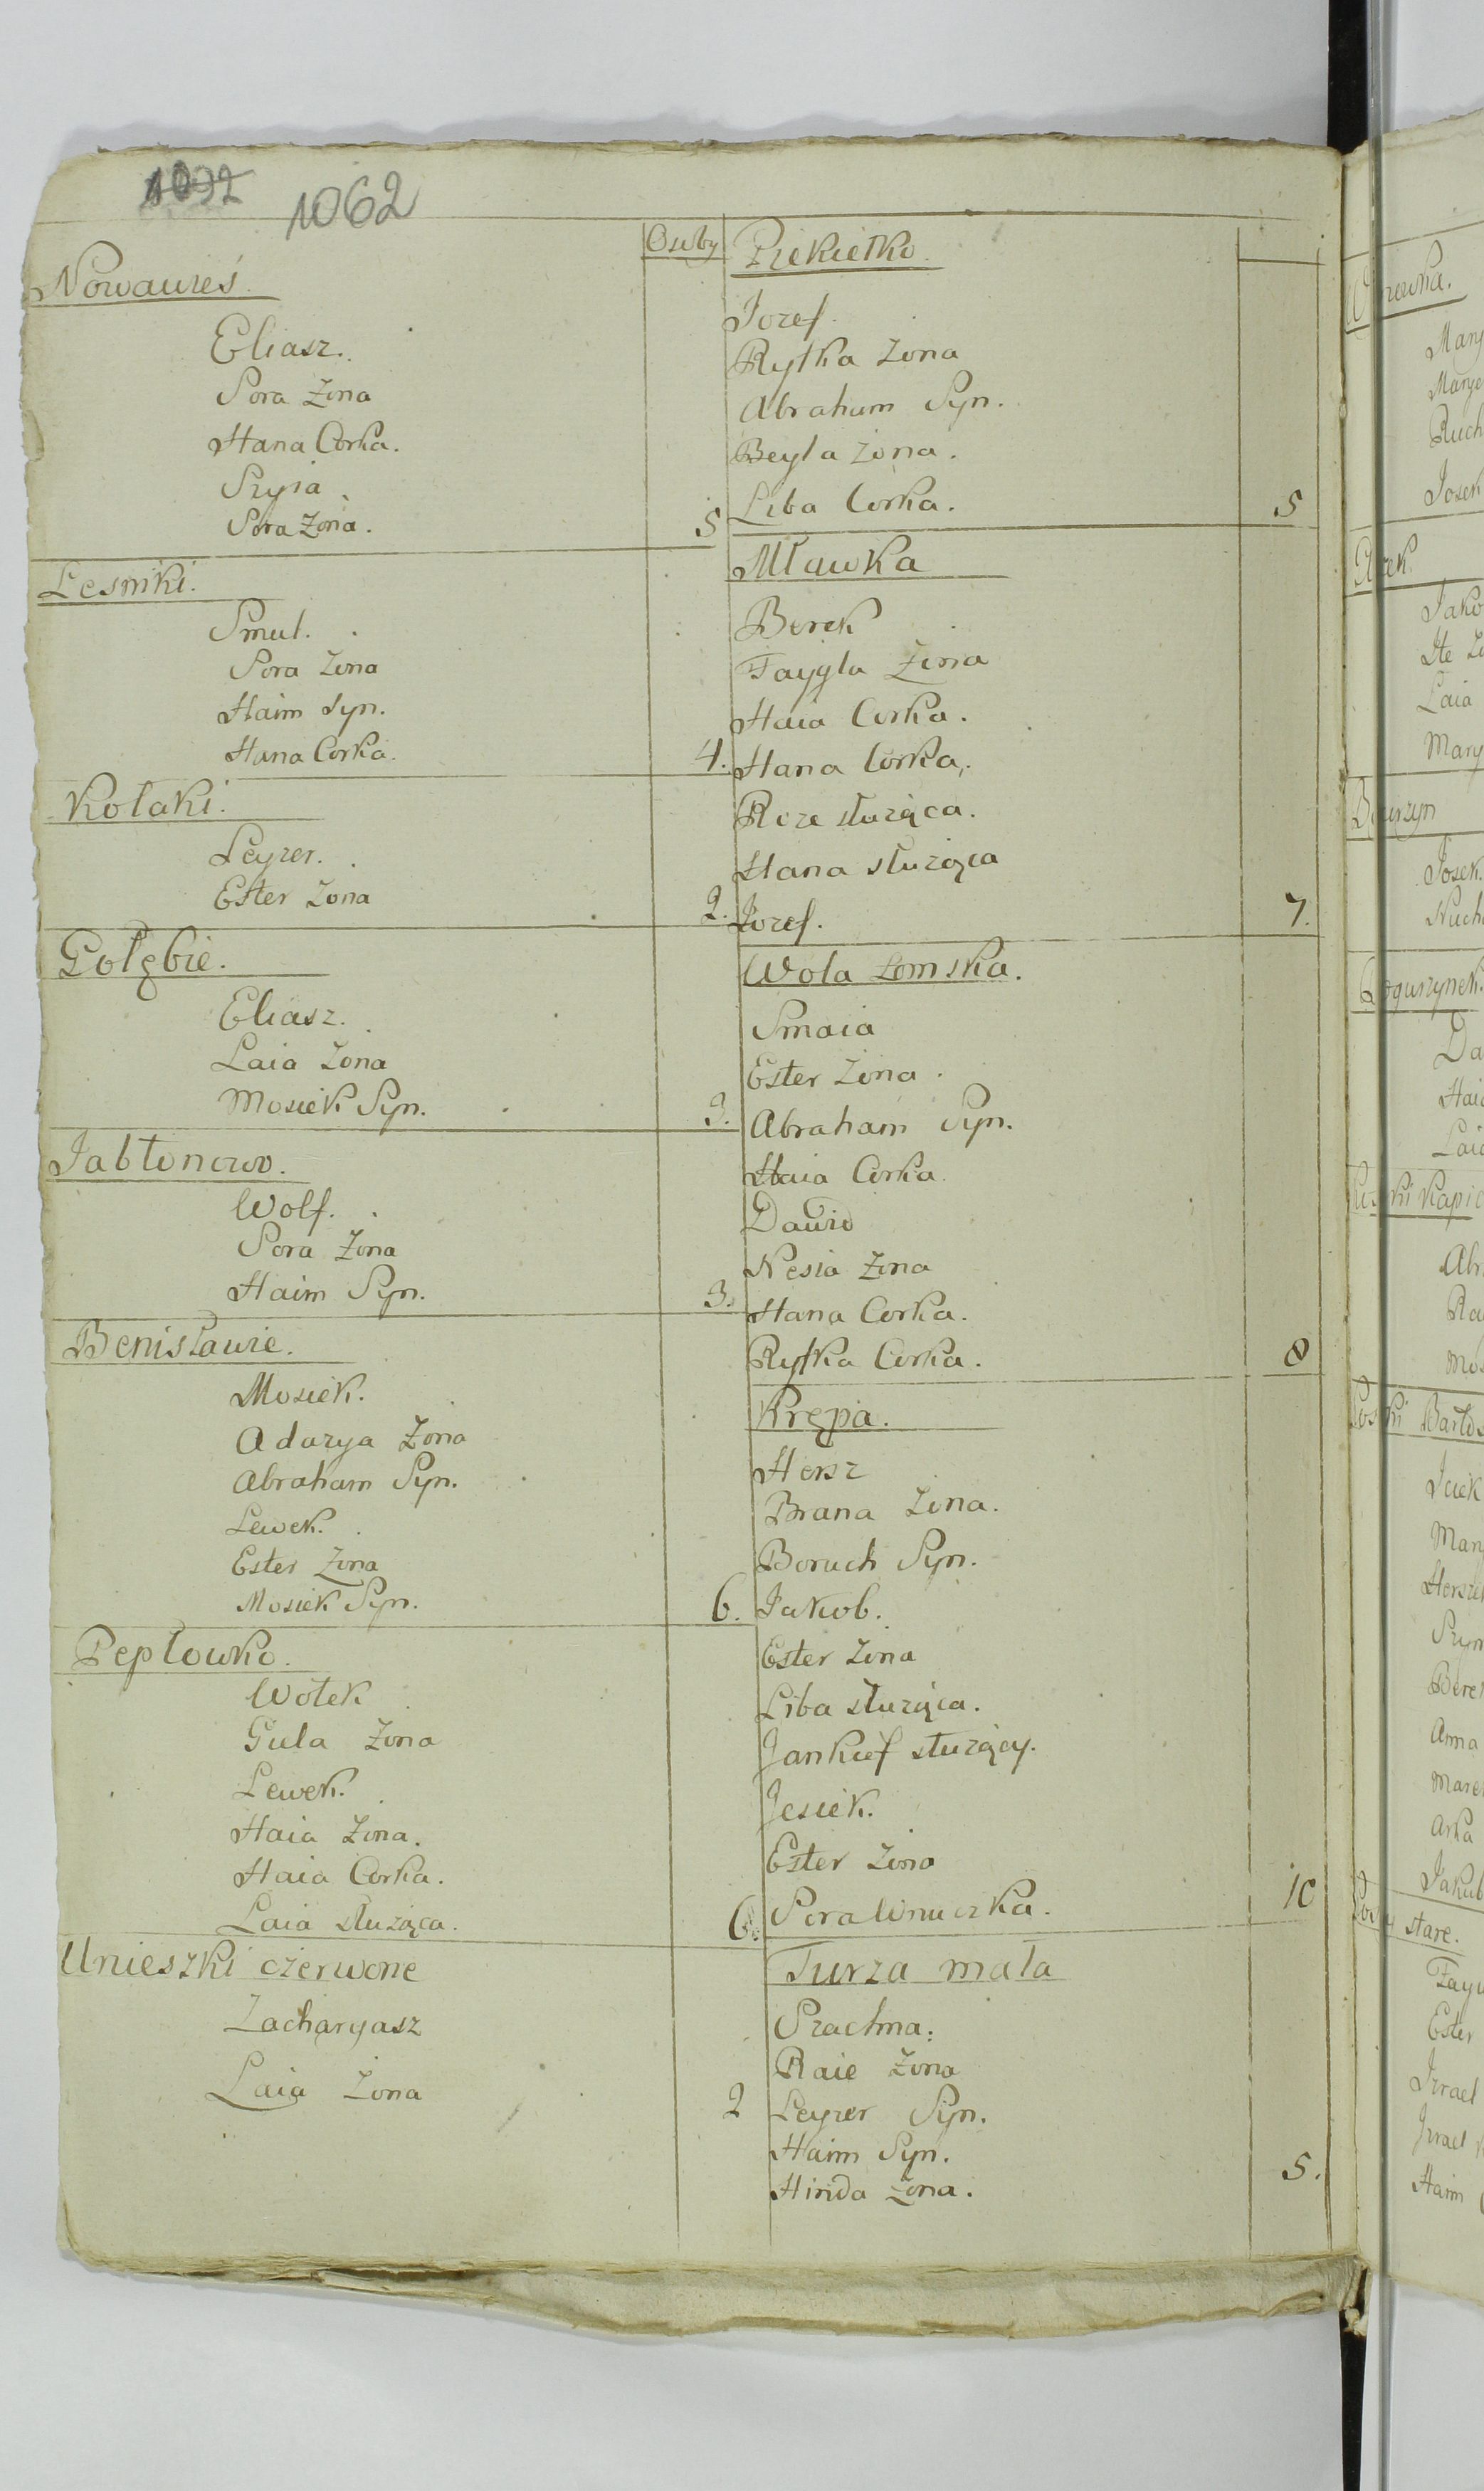 1032 1062
Osoby
Nowawieś.
Eliasz.
Sora Zona
Hana Corka.
Szyia
Sora Zona.
5
Lesniki.
Smul.
Sora Zona
Haim Syn.
Hana Corka.
4.
Kołaki.
Leyzer.
Ester Zona
2.
Gołębie.
Eliasz.
Laia Zona
Mosiek Syn.
3.
Jabłonowo.
Wolf.
Sora Zona
Haim Syn.
3.
Benisławie.
Mosiek.
Adazya Zona
Abraham Syn.
Lewek.
Ester Zona
Mosiek Syn.
6.
Pepłowko.
Wołek
Gula Zona
Lewek.
Haia Zona.
Haia Corka.
Laia służąca.
6.
Unieszki czerwone
Zacharyasz
Laia Zona
2
Piekiełko.
Jozef.
Ryfka Zona
Abraham Syn.
Beyla Zona.
Liba Corka.
5
Mławka
Berek
Faygla Zona
Haia Corka.
Hana Corka.
Roze służąca.
Hana służąca
Jozef.
7.
Wola Łomska.
Smaia
Ester Zona.
Abraham Syn.
Haia Corka.
Dawid
Nesia Zona
Hana Corka.
Ryfka Corka.
8
Krępa.
Hersz
Brana Zona.
Boruch Syn.
Jakob.
Ester Zona
Liba służąca.
Jankief służący.
Jesiek.
Ester Zona
Sora Wnuczka.
10
Turza mała
Szachna.
Raie Zona
Leyzer Syn.
Haim Syn.
Hinda Zona.
5.
Josek
Josek.
Ester
Izrael
Haim